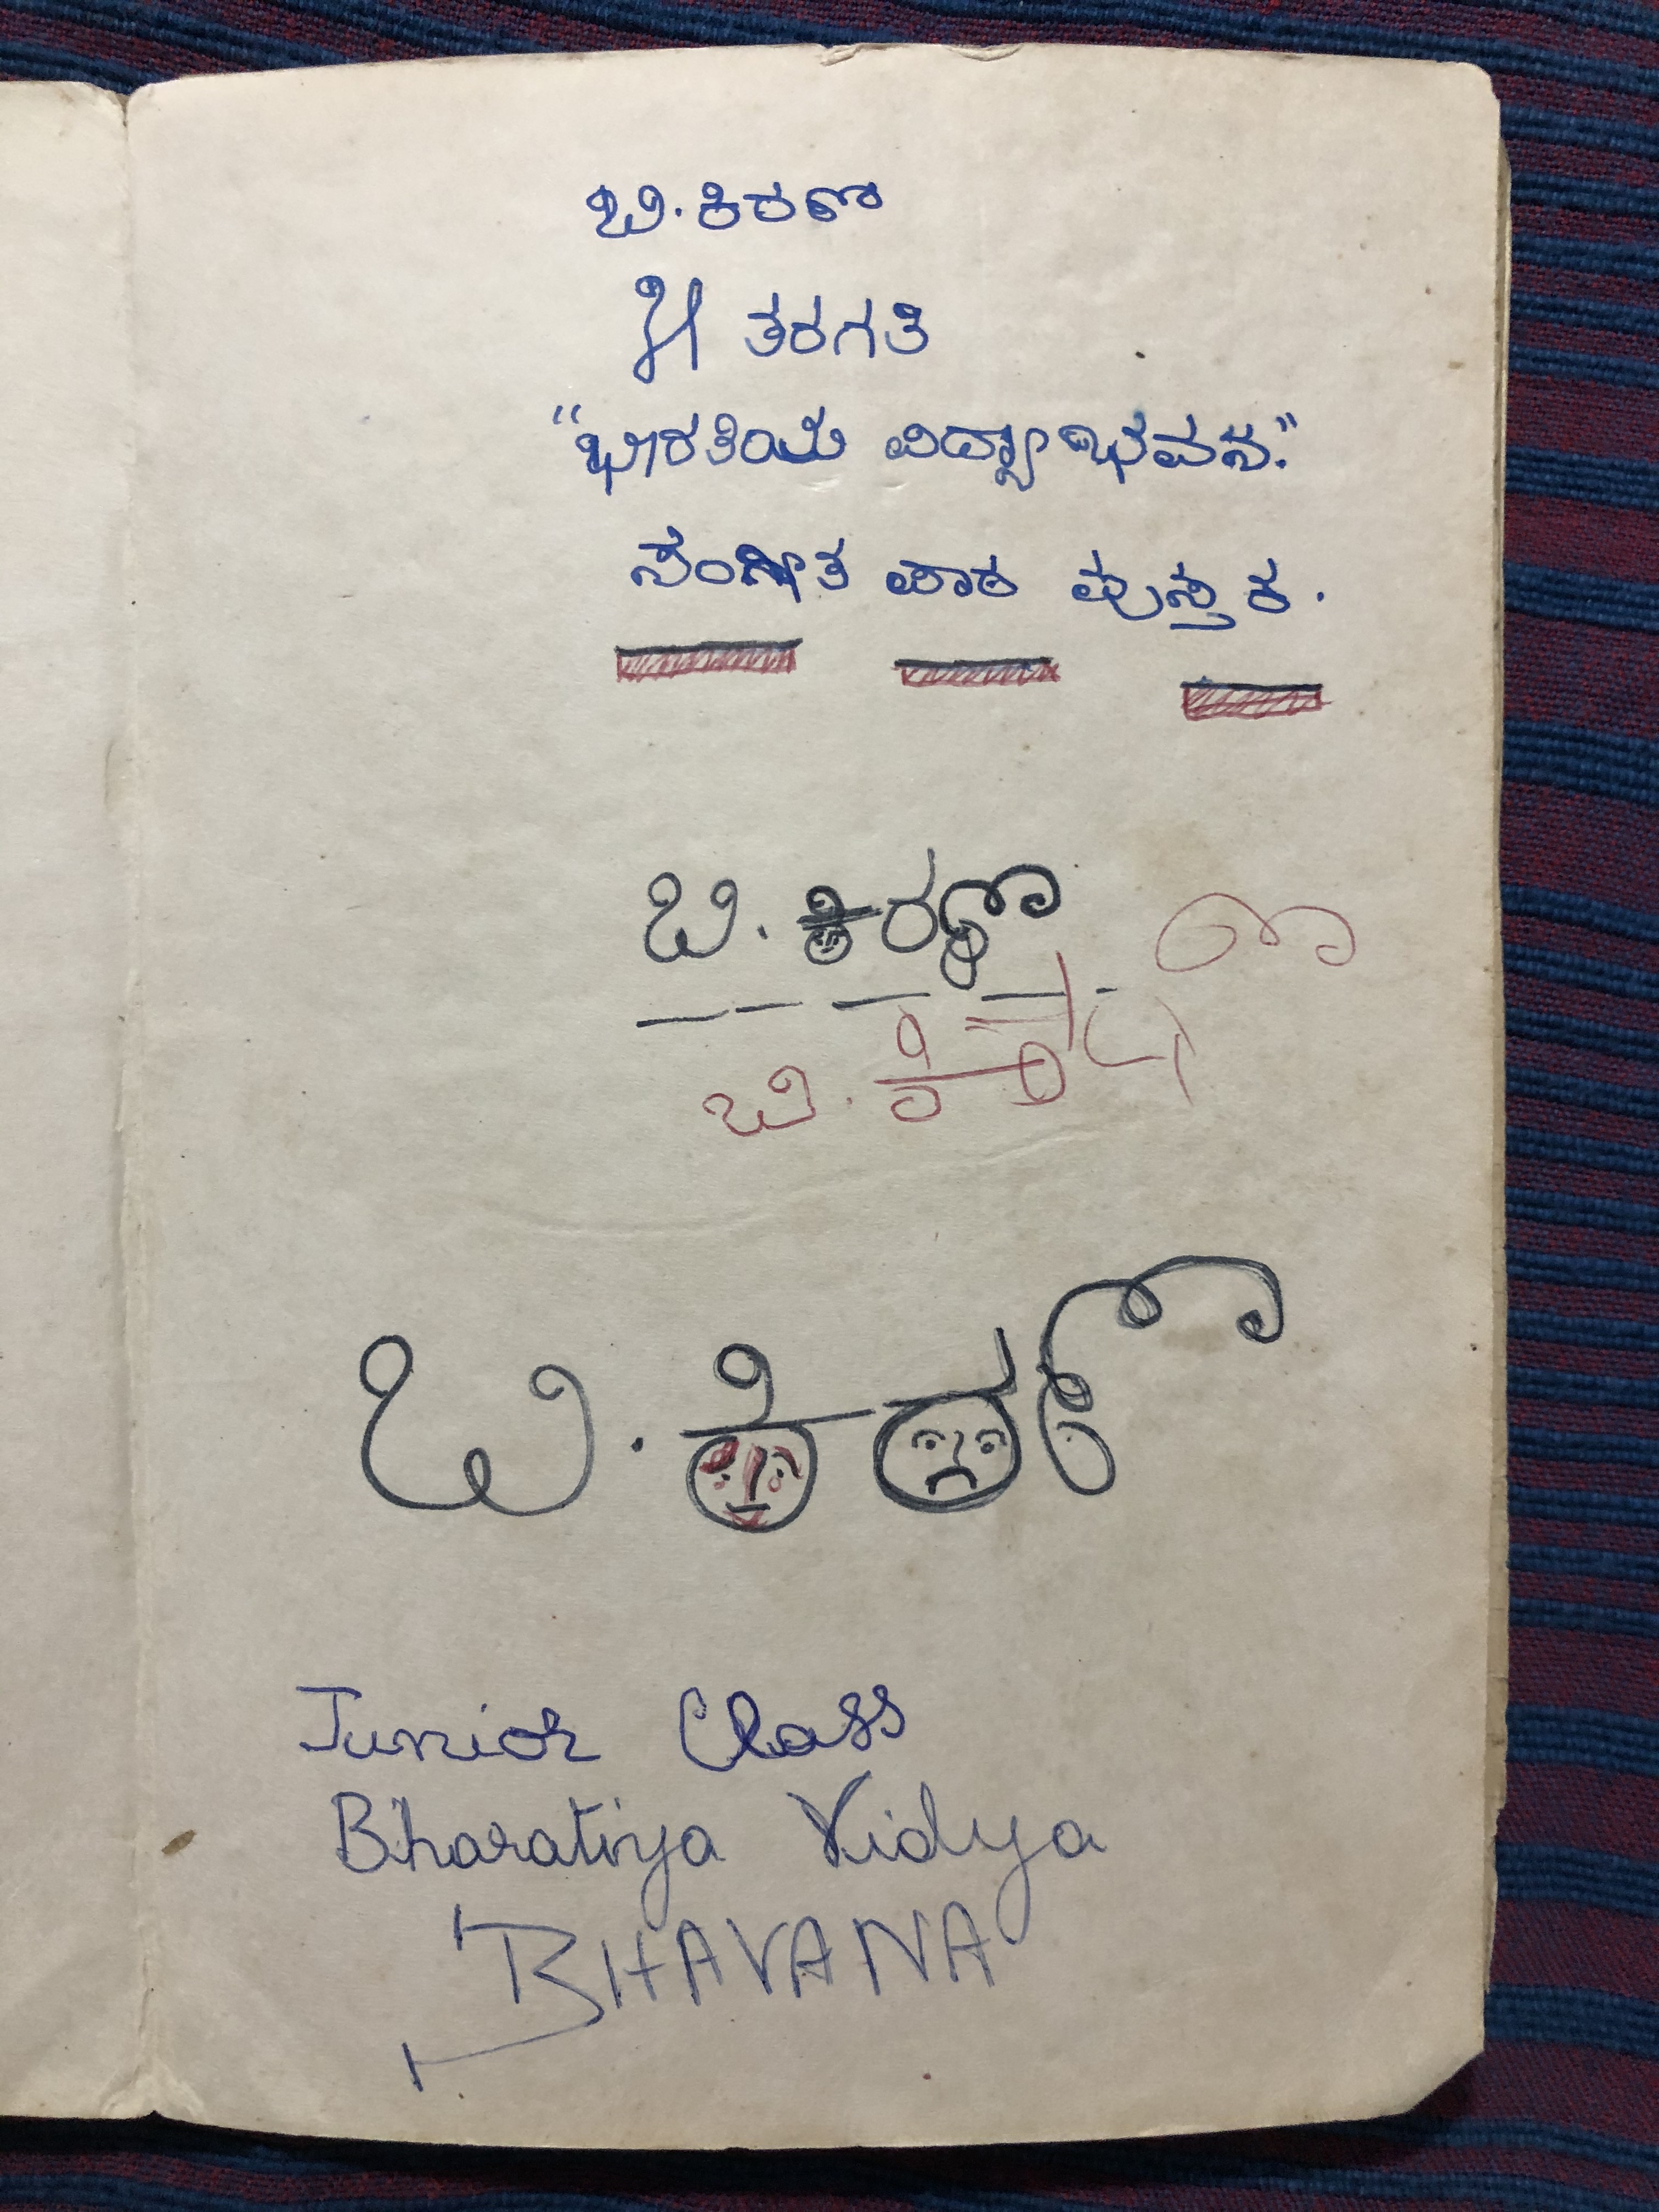 ಬಿ. ಕಿರಣ
ತರಗತಿ
"ಭಾರತಿಯ ವಿದ್ಯಾಭವನ."
ಸಂಗೀತ ಪಾಠ ಪುಸ್ತಕ.
ಬಿ. ಕಿರಣ
ಬಿ. ಕಿರಣ
ಬಿ. ಕಿರಣ
Junior Class
Bharatiya Vidya
BHAVANA